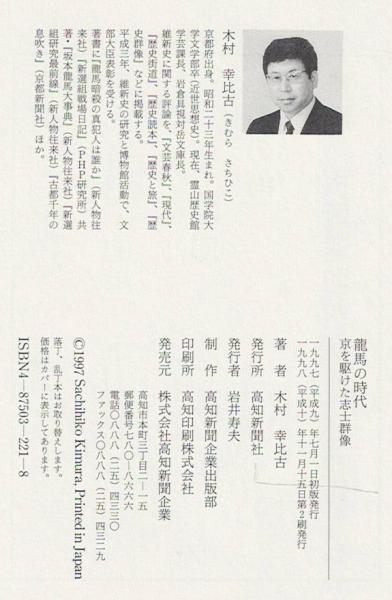 木村　幸比古（きむら　さちひこ）
京都府出身。昭和二十三年生まれ。国学院大
学文学部卒（近世思想史）。現在、霊山歴史館
学芸課長、岩倉具視対岳文庫長。
維新史に関する評論を、『文芸春秋』、『現代』、
『歴史街道』、『歴史読本』、『歴史と旅』、『歴
史群像』などに掲載する。
平成三年、維新史の研究と博物館活動で、文
部大臣表彰を受ける。
著書に『龍馬暗殺の真犯人は誰か』（新人物往
来社）『新選組戦場日記』（PHP研究所）共
著・『坂本龍馬大事典』（新人物往来社）『新選
組研究最前線』（新人物往来社）『古都千年の
息吹き』（京都新聞社）ほか。
龍馬の時代
京を駆けた志士群像
一九九七（平成九）年七月一日初版発行
一九九八（平成十）年十一月十五日第2刷発行
著　者　木村　幸比古
発行所　高知新聞社
発行者　岩井寿夫
制　作　高知新聞企業出版部
印刷所　高知印刷株式会社
発売元　株式会社高知新聞企業
高知市本町三丁目二―一五
郵便番号七八〇―八六六六
電話〇八八八（二五）四三三〇
ファックス〇八八八（二五）四三二九
©1997 Sachihiko Kimura, Printed in Japan
落丁、乱丁本はお取り替えします。
価格はカバーに表示してあります。
ISBN4―87503―221―8